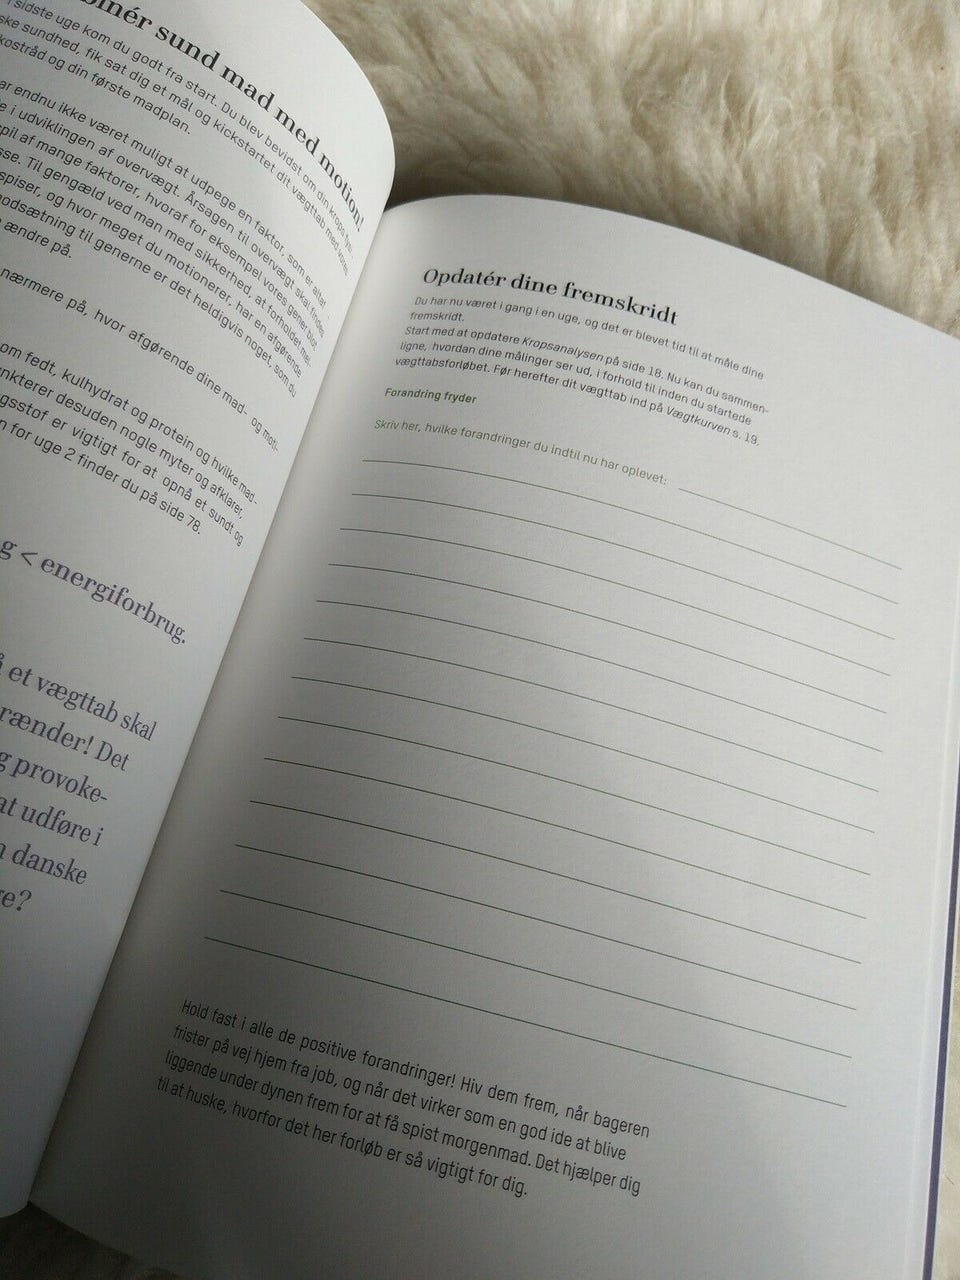 binér sund mad med motion!
sidste uge kom du godt fra start. Du blev bevidst om din krops fysi-
ske sundhed, fik sat dig et mål og kickstartet dit vægttab med vores
kostråd og din første madplan.
ar endnu ikke været muligt at udpege en faktor, som er altaf-
e i udviklingen af overvægt. Årsagen til overvægt skal findes
pil af mange faktorer, hvoraf for eksempel vores gener blot
sse. Til gengæld ved man med sikkerhed, at forholdet mel-
spiser, og hvor meget du motionerer, har en afgørende
modsætning til generne er det heldigvis noget, som du
ændre på.
nærmere på, hvor afgørende dine mad- og moti-
om fedt, kulhydrat og protein og hvilke mad-
nkterer desuden nogle myter og afklarer,
gsstof er vigtigt for at opnå et sundt og
n for uge 2 finder du på side 78.
g < energiforbrug.
å et vægttab skal
rænder! Det
g provoke-
at udføre i
n danske
re?
Opdatér dine fremskridt
Du har nu været i gang i en uge, og det er blevet tid til at måle dine
fremskridt.
Start med at opdatere Kropsanalysen på side 18. Nu kan du sammen-
ligne, hvordan dine målinger ser ud, i forhold til inden du startede
vægttabsforløbet. Før herefter dit vægttab ind på Vægtkurven s. 19.
Forandring fryder
Skriv her, hvilke forandringer du indtil nu har oplevet:
Hold fast i alle de positive forandringer! Hiv dem frem, når bageren
frister på vej hjem fra job, og når det virker som en god ide at blive
liggende under dynen frem for at få spist morgenmad. Det hjælper dig
til at huske, hvorfor det her forløb er så vigtigt for dig.